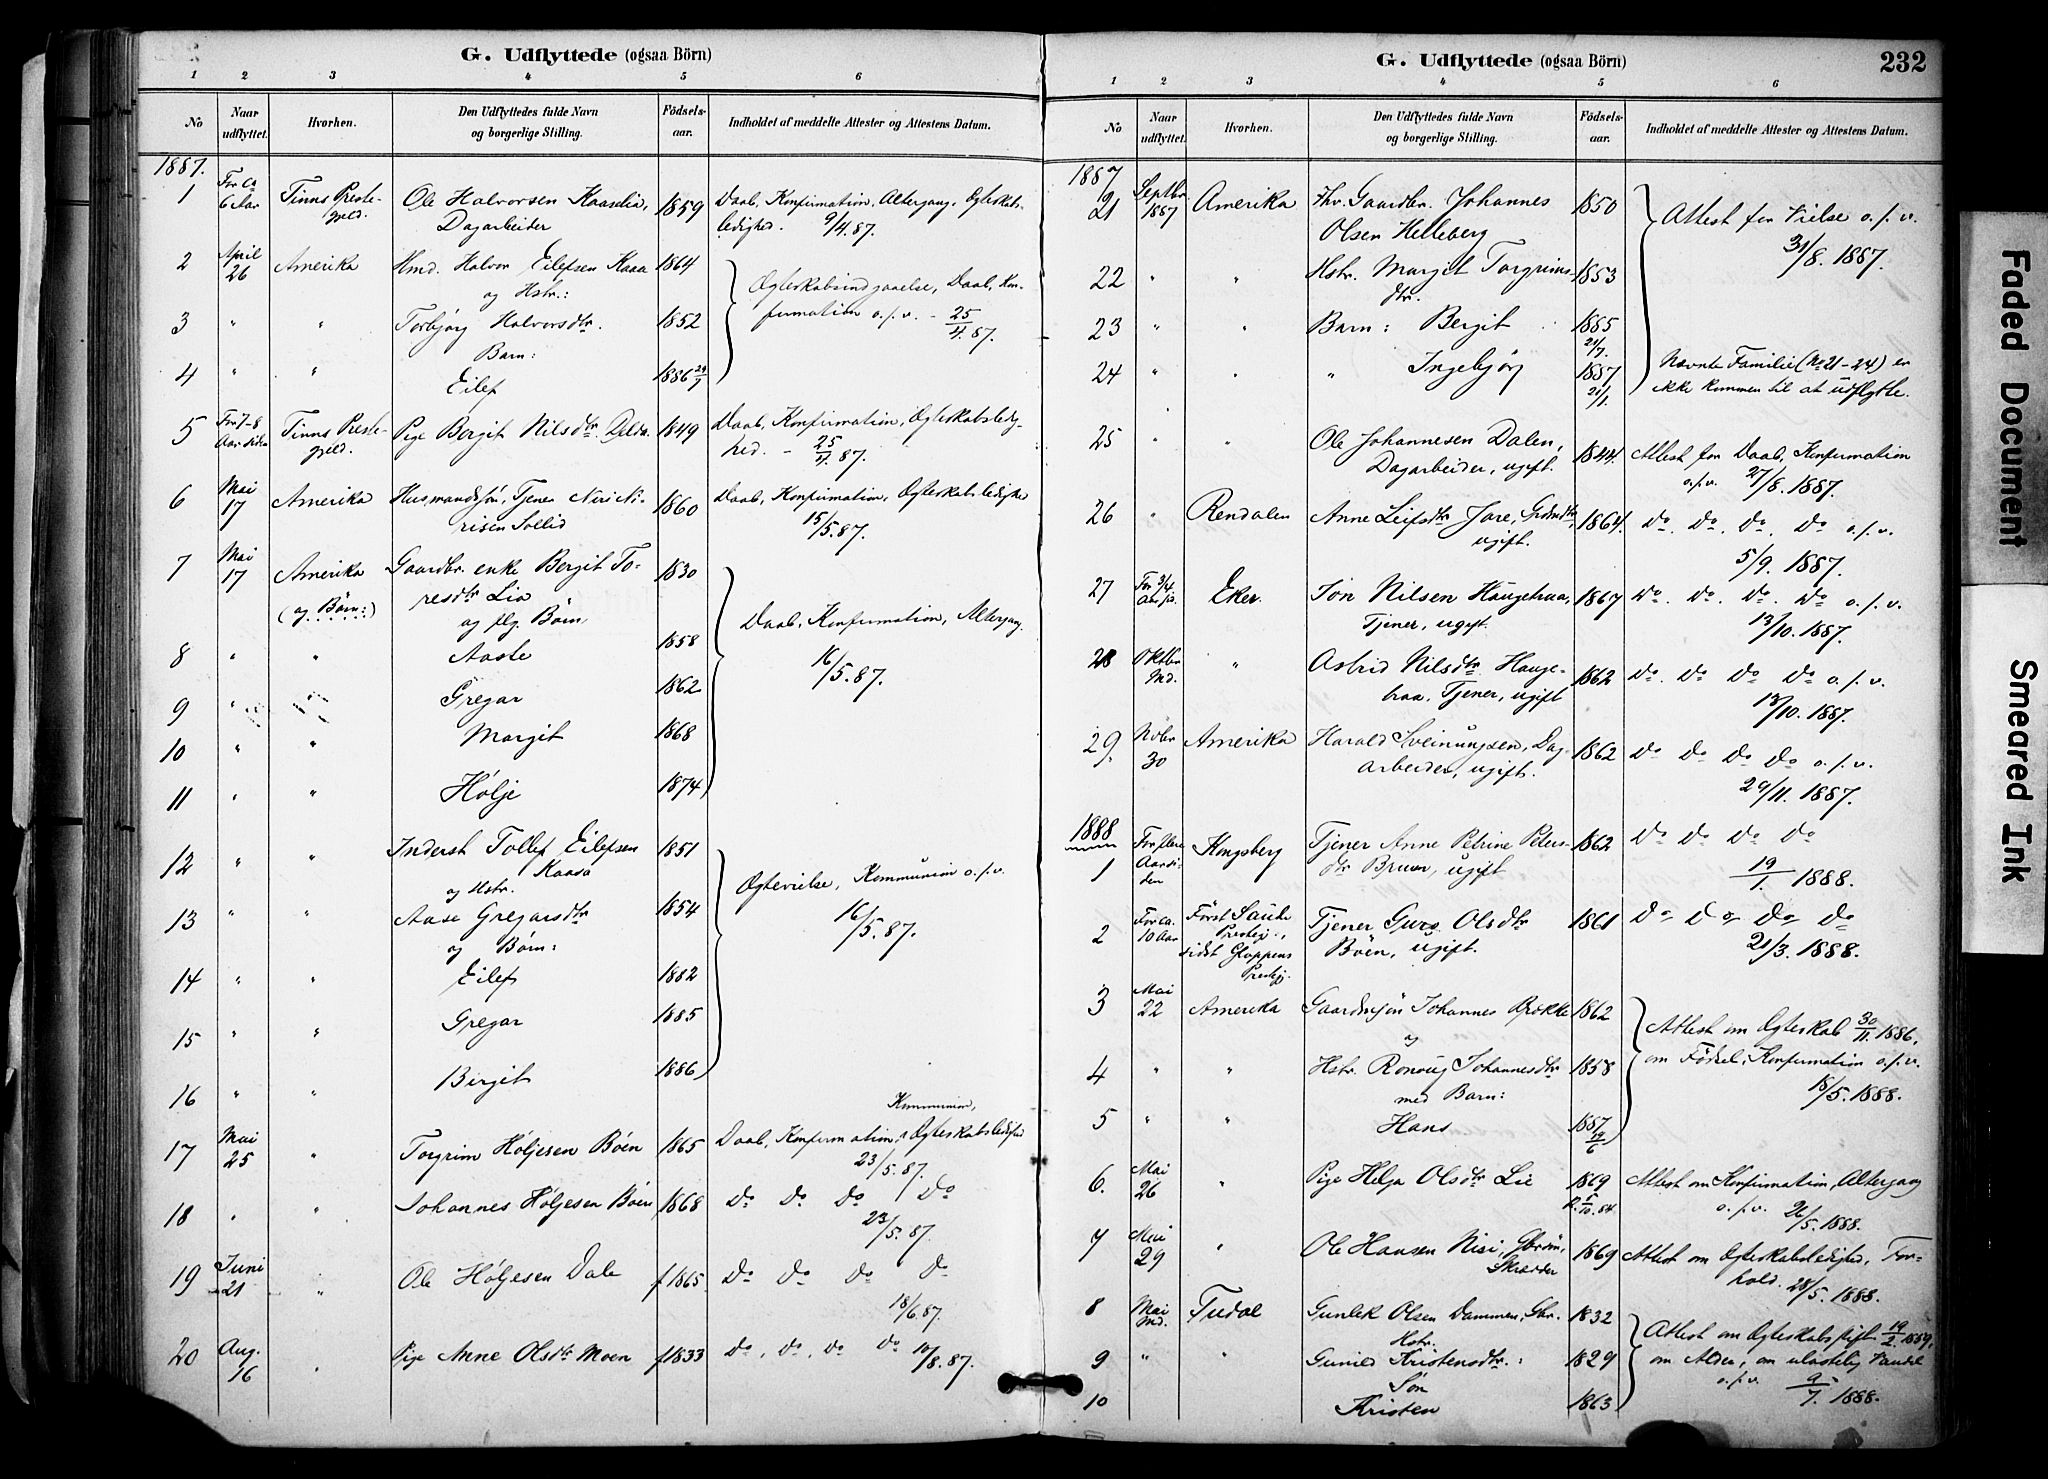 G. Udflyttede (ogsaa Börn)
1 2 3 4 5 6
No
Naar udflyttet.
Hvorhen.
Den Udflyttedes fulde Navn og borgerlige Stilling.
Födsels-aar.
Indholdet af meddelte Attester og Attestens Datum.
1887.
1 For ca 6 Aar Tinns Preste- Ole Halvorsen Kaaselia, 1859 Daab, Konfirmation, Altergang, Egteskabs-
gjeld. Dagarbeider ledighed. 9/4.87.
2 April 26 Amerika Hmd. Halvor Eilefsen Kaasa 1864 Egteskabsindgaaelse, Daab, Kon-
og Hstr.: firmation o.s.v. - 25/4.87.
3 " " Torbjørg Halvorsdtr. 1852
Barn:
4 " " Eilef 1886
5 For 7-8 Aar siden Tinns Preste- Pige Bergit Nilsdtr. 1849 Daab, Konfirmation, Egteskabsledig-
gjeld. hed. - 25/4.87.
6 Mai 17 Amerika Husmandssön, Tjener Niri Ni- 1860 Daab, Konfirmation, Egteskabsledighed
risen Sollid 15/5.87.
7 Mai 17 Amerika Gaardbr. enke Bergit To- 1830
(og Börn:) resdtr Lia
og flg. Börn Daab, Konfirmation, Altergang.
8 " " Aaste 1858 16/5.87.
9 " " Gregar 1862
10 " " Margit 1868
11 " " Hølje 1874
12 " " Inderst Tollef Eilefsen 1851
Kaasa
og Hstr. Egtevielse, Kommunion o.s.v.
13 " " Aase Gregarsdtr 1854 16/5.87.
og Børn:
14 " " Eilef 1882
15 " " Gregar 1885
16 " " Birgit 1886
Kommunion,
17 Mai 25 " Torgrim Høljesen Böen 1865 Daab, Konfirmation, Egteskabsledighed
23/5.87.
18 " " Johannes Høljesen Böen 1868 Do Do Do Do
23/5.87.
19 Juni 21 " Ole Høljesen Dale f 1865 Do Do Do Do
18/6.87.
20 Aug. 16 " Pige Anne Olsdtr Moen f 1833 Do, Do, Do Do 10/8.87.
G. Udflyttede (ogsaa Börn) 232
1 2 3 4 5 6
No
Naar udflyttet.
Hvorhen.
Den Udflyttedes fulde Navn og borgerlige Stilling.
Födsels-aar.
Indholdet af meddelte Attester og Attestens Datum.
1887
21 Septbr 1887 Amerika Fhv. Gaardbr. Johannes 1850 Attest for Vielse o.s.v.
Olsen Helleberg 31/8. 1887.
22 " " Hstr. Margit Torgrims- 1853
dtr.
23 " " Barn: Bergit 1885
21/7.
24 " " " Ingebjørg 1887 Nævnte Familie (No 21-24) er
21/1. ikke kommen til at udflytte.
25 " " Ole Johannesen Dalen, 1844. Attest for Daab, Konfirmation
Dagarbeider, ugift. o.s.v. 27/8. 1887.
26 " Rendalen Anne Leifsdtr Jore, Grdmdtr, 1864. Do. Do. Do. Do o.s.v.
ugift. 5/9. 1887.
27 For 3/4 Aar s. Eker. Jon Nilsen Haugetraa, 1867 Do. Do. Do. Do o.s.v.
Tjener, ugift. 13/10. 1887.
28 Oktbr Md. " Astrid Nilsdtr Hauge- 1862 Do. Do Do Do o.s.v.
traa, Tjener, ugift 13/10. 1887.
29. Novbr 30 Amerika Harald Sveinungsen, Dag- 1862 Do Do Do Do o.s.v.
arbeider, ugift. 29/11. 1887.
1888
1 For flere Aar si-den Kongsberg Tjener Anne Petrine Peters- 1862 Do Do Do Do
dtr Bruun, ugift 19/1. 1888.
2 For ca. 10 Aar Först Saude Prestegj., Tjener Guro Olsdtr 1861 Do Do Do Do
sidst Gloppens Prestgj. Böen, ugift. 21/3. 1888.
3 Mai 22 Amerika Gaardmsön Johannes Brokke 1862 Attest om Egteskab 30/11. 1886,
og om Födsel, Konfirmation o.s.v.
4 " " Hstr. Ronoug Johannesdtr 1858 18/5. 1888.
med Barn:
5 " " Hans 1887
19/6
6. Mai 26 " Pige Helga Olsdtr Lie 1869 Attest om Konfirmation, Altergang
o.s.v. 26/5. 1888.
7 Mai 29 " Ole Hansen Nisi, Gbrsön, 1869 Attest om Egteskabsledighed, For-
Skrædder hold. 28/5. 1888.
8 Mai Md. Tudal Gunlek Olsen Dammen, Gbr. 1832 Attest om Egteskabsstift. 19/2. 1859,
Hstr. om Alder, om ulastelig Vandel
9 " " Gunild Kristensdtr.: 1829 o.s.v. 9/7. 1888.
Søn
10 Kristen 1863
Faded Document
Smeared Ink